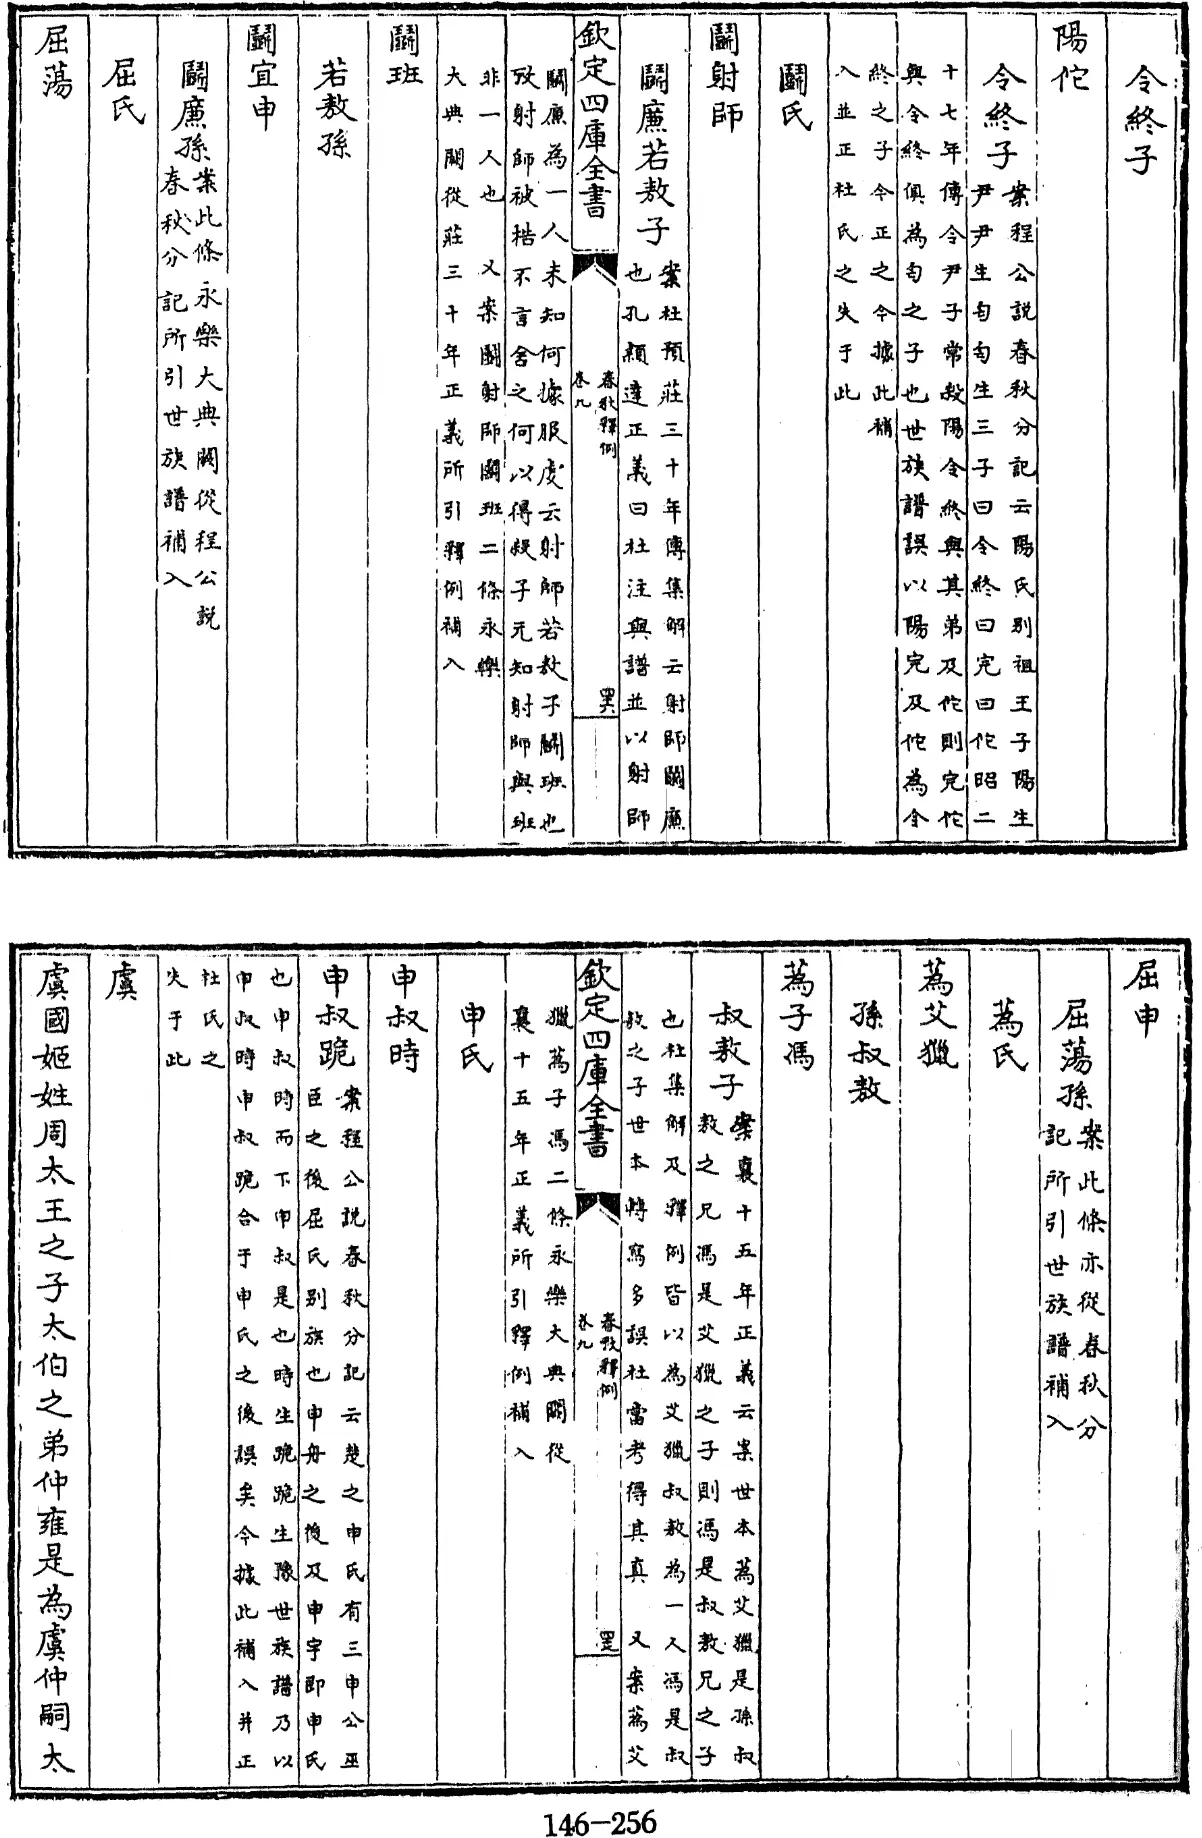 令終子
陽佗
令終子案程公說春秋分記云陽氏别祖王子陽生
尹尹生匄匄生三子曰令終曰完曰佗昭二
十七年傳令尹子常殺陽令終與其弟及佗則完佗
與令終俱為匄之子也世族譜誤以陽完及佗為令
終之子今正之今據此補
入並正杜氏之失于此
鬭氏
鬭射師
鬭廉若敖子案杜預莊三十年傳集解云射師鬭廉
也孔穎達正義曰杜注與譜並以射師
欽定四庫全書
春秋釋例
卷九
鬭廉為一人未知何據服虔云射師若敖子鬭班也
致射師被梏不言舍之何以得殺子元知射師與班
非一人也 又案鬭射師鬭班二條永樂
大典闕從莊三十年正義所引釋例補入
鬭班
若敖孫
鬭宜申
鬭廉孫案此條永樂大典闕從程公説
春秋分記所引世族譜補入
屈氏
屈蕩
屈申
屈蕩孫案此條亦從春秋分
記所引世族譜補入
蒍氏
蒍艾獵
孫叔敖
蒍子馮
叔敖子案襄十五年正義云案世本蒍艾獵是孫叔
敖之兄馮是艾獵之子則馮是叔敖兄之子
也杜集解及釋例皆以為艾獵叔敖為一人馮是叔
敖之子世本轉寫多誤杜當考得其真 又案蒍艾
欽定四庫全書
春秋釋例
卷九
獵蒍子馮二條永樂大典闕從
襄十五年正義所引釋例補入
申氏
申叔時
申叔跪案程公說春秋分記云楚之申氏有三申公巫
臣之後屈氏别族也申舟之後及申宇即申氏
也申叔時而下申叔是也時生跪跪生豫世族譜乃以
申叔時申叔跪合于申氏之後誤矣今據此補入并正
杜氏之
失于此
虞
虞國姬姓周太王之子太伯之弟仲雍是為虞仲嗣太
146-256